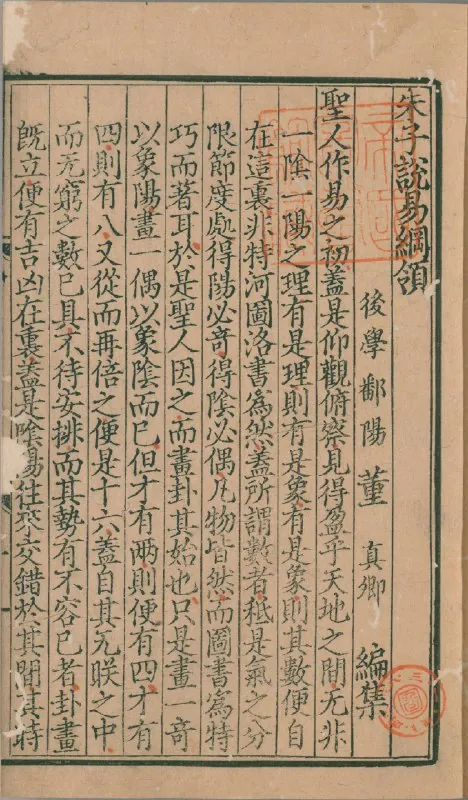 朱子說易綱領
後學鄱陽董真卿編集
聖人作易之初蓋是仰觀俯察見得盈乎天地之間无非
一陰一陽之理有是理則有是象有是象則其數便自
在這裏非特河圖洛書爲然蓋所謂數者秪是氣之分
限節度處得陽必奇得陰必偶凡物皆然而圖書爲特
巧而著耳於是聖人因之而畫卦其始也只是畫一奇
以象陽畫一偶以象陰而已但才有兩則便有四才有
四則有八又從而再倍之便是十六蓋自其无眹之中
而无窮之數已具不待安排而其勢有不容已者卦畫
既立便有吉凶在裏蓋是陰陽往來交錯於其間其時